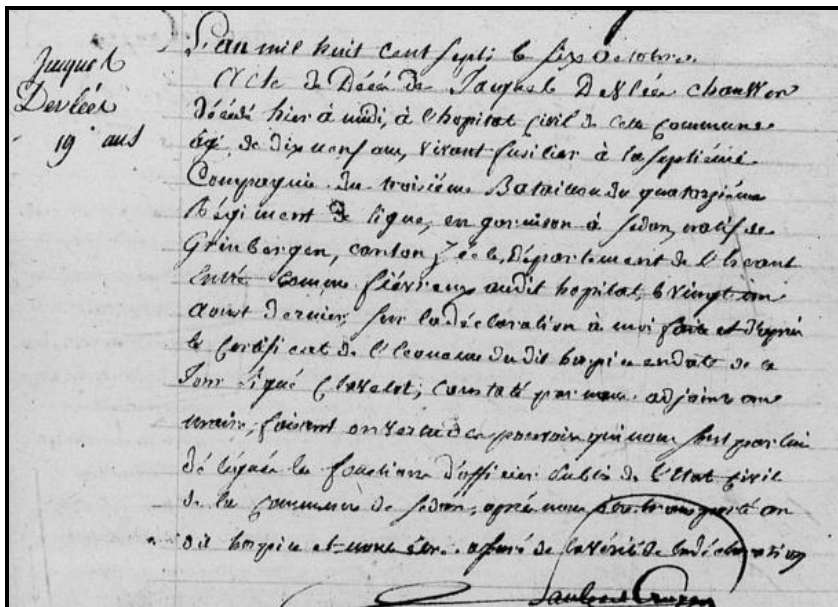 Jacques
Devleer
19 ans
L'an mil huit cent sept le six octobre
Acte de Décès de Jacques Devleer
décédé hier à midi, à l'hopital civil de cette Commune
agé de dix neuf ans, vivant fusilier à la septième
Compagnie du troisième Bataillon du quatorzième
Régiment de ligne, en garnison à Sedan, natif de
Grimbergen, canton département de l
Entré comme fiévreux audit hopital, le vingt un
aoust dernier, sur la déclaration à moi faite et d'après
le Certificat de l'Econome du dit hospice en date de ce
Jour signé Clavelot, constaté par nous adjoint au
maire, faisant en vertu des pouvoirs qui nous sont par lui
délégués les fonctions d'officier public de l'Etat civil
de la Commune de Sedan, après nous être transporté au
dit hospice et nous être assuré de la vérité de la déclaration